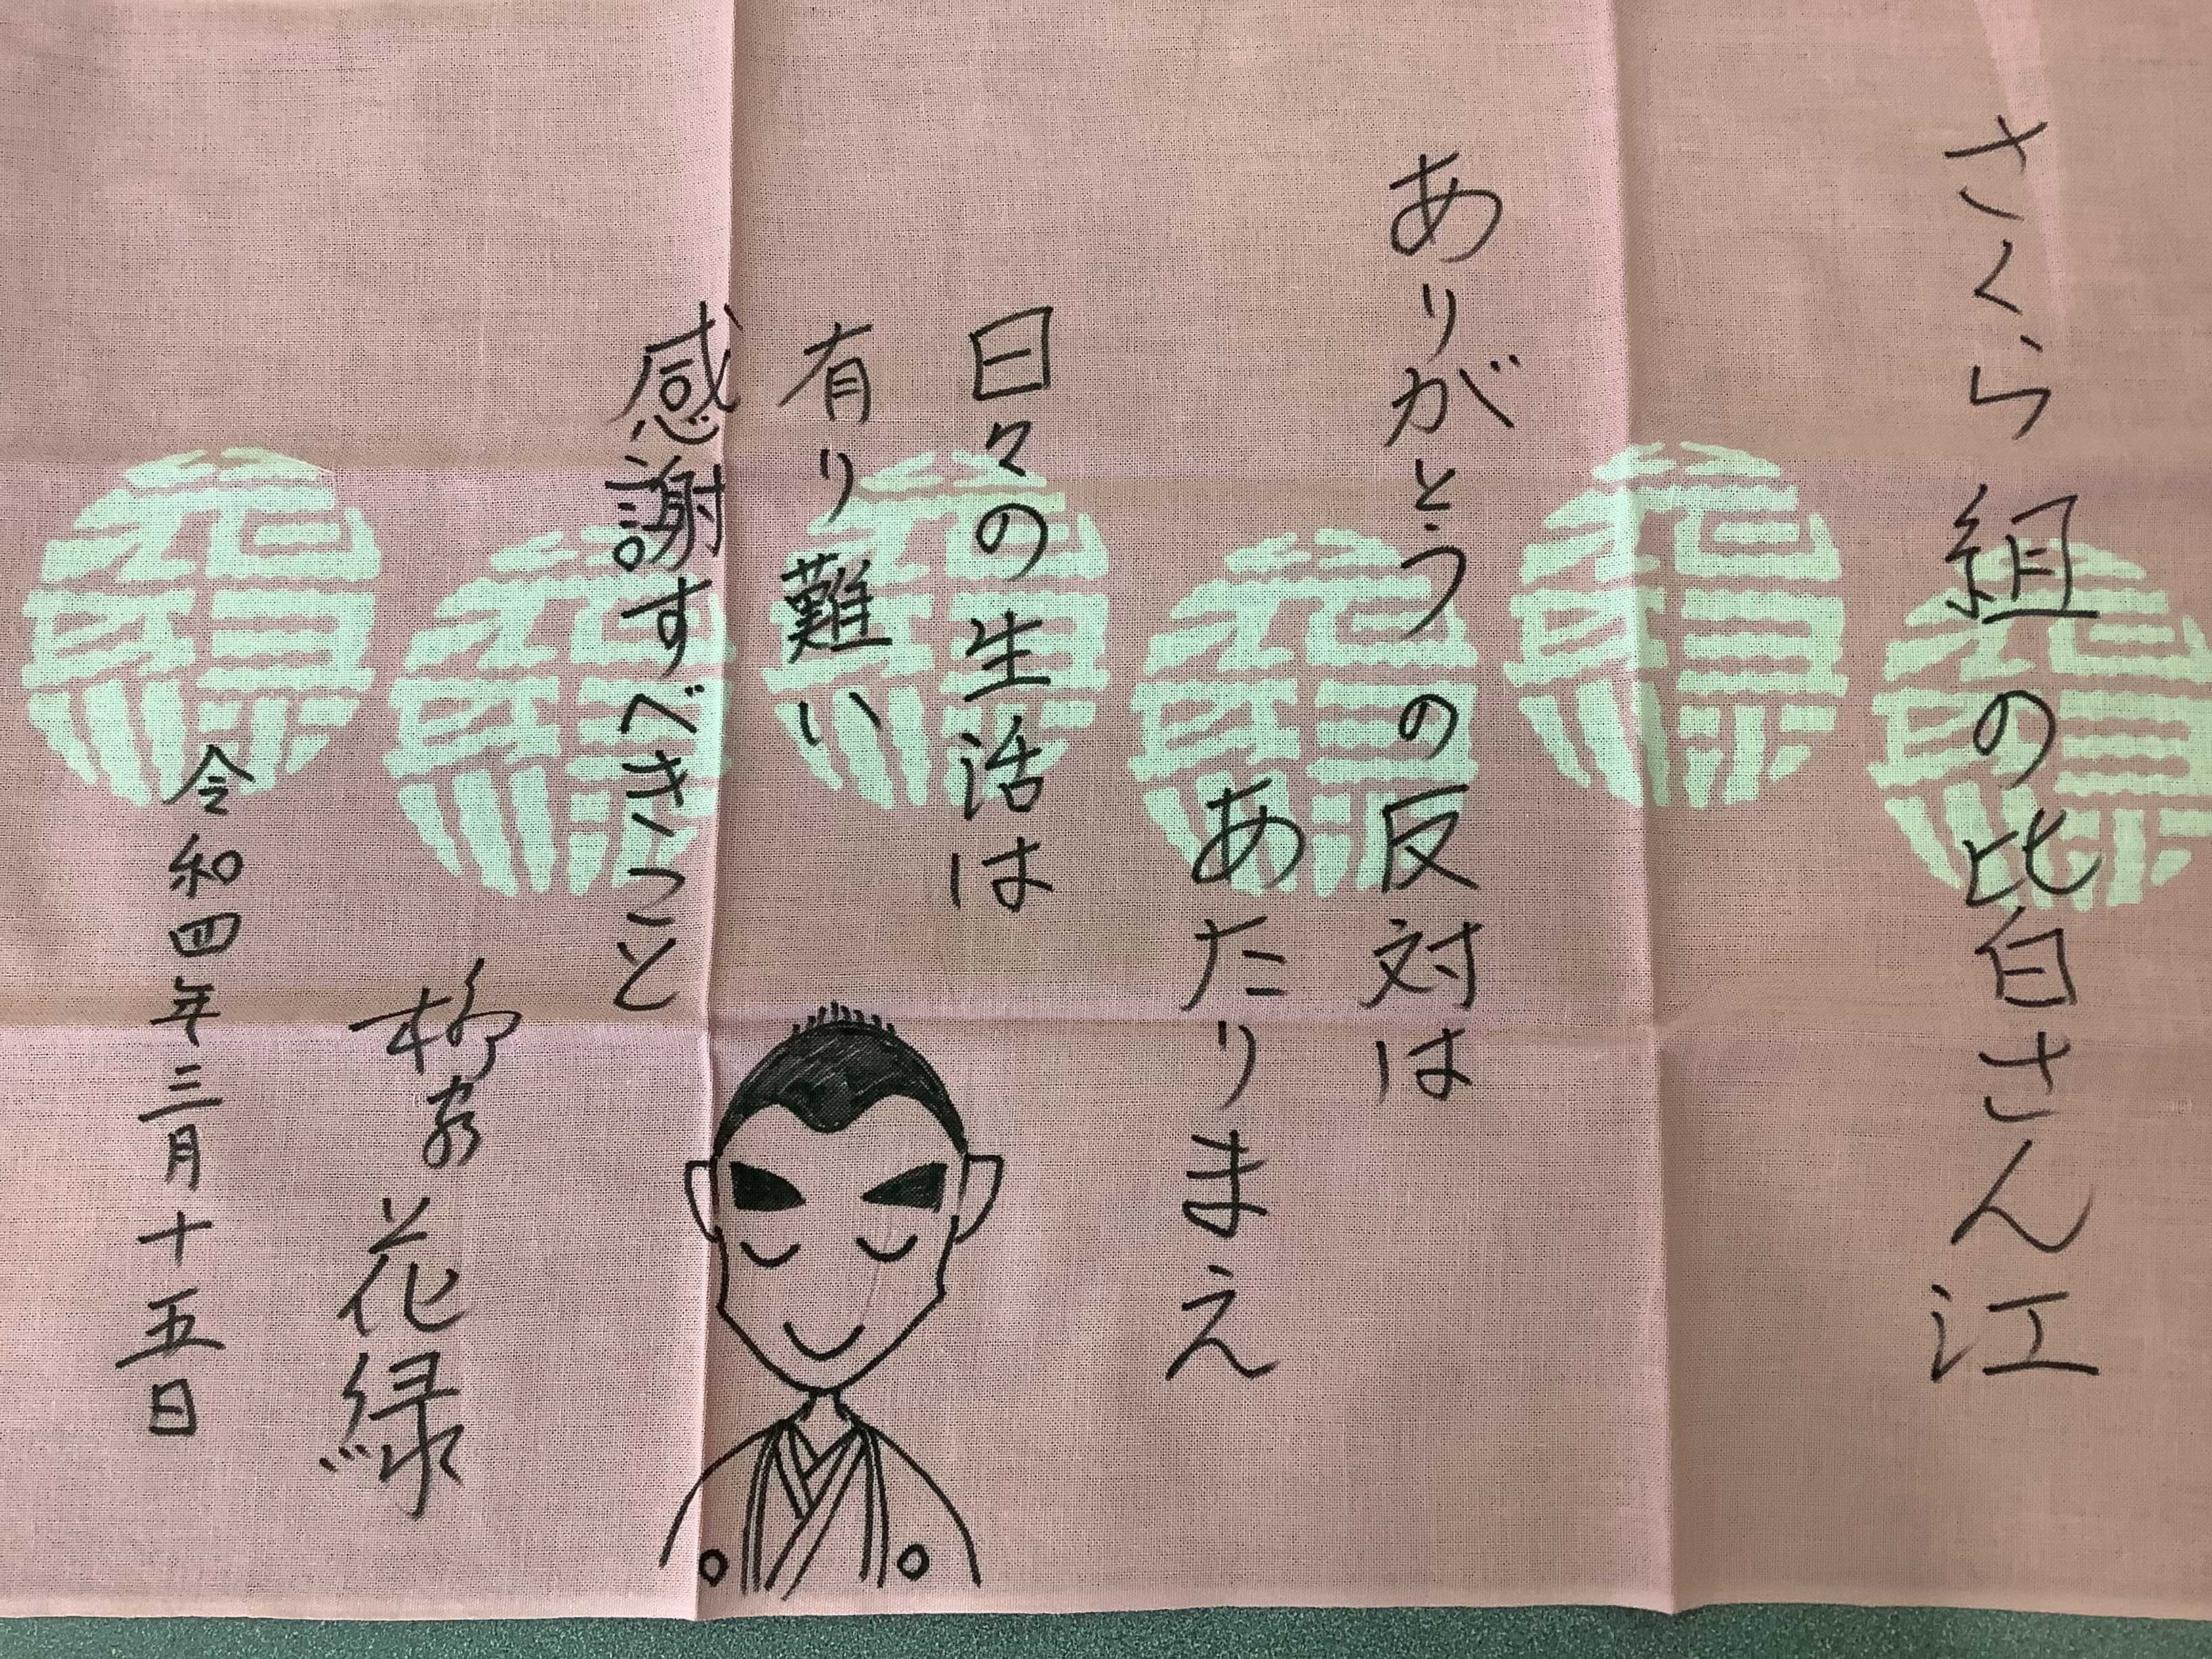 さくら組の皆さん江
ありがとうの反対は
あたりまえ
日々の生活は
有り難い
感謝すべきこと
柳家花緑
令和四年三月十五日